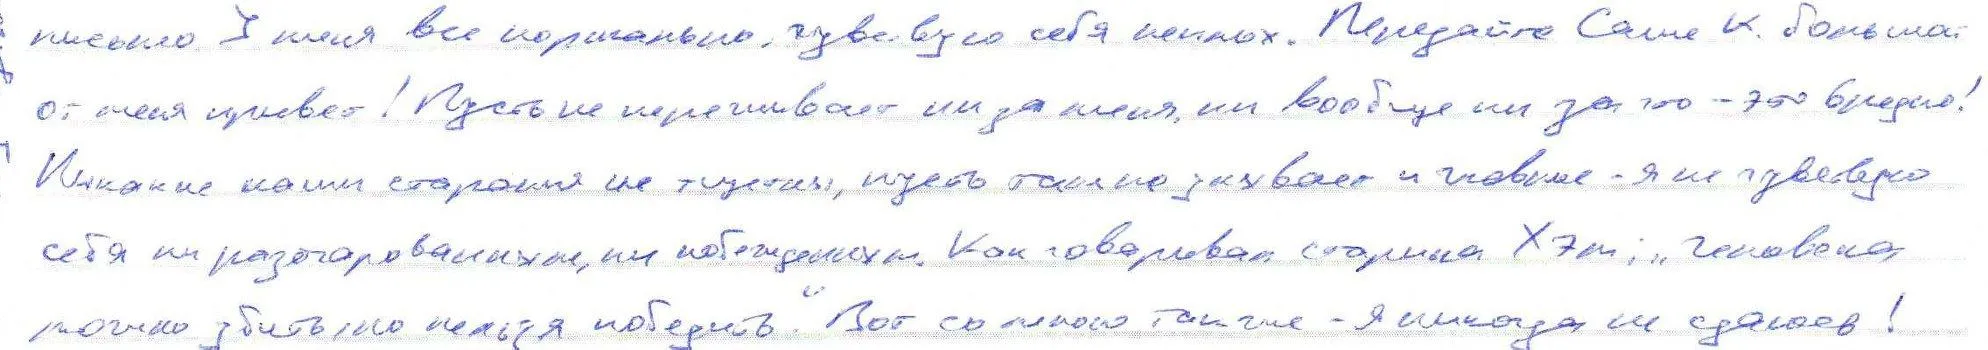 письмо. У меня все нормально, чувствую себя неплох. Передайте Саше К. большой
от меня привет! Пусть не переживает ни за меня, ни вообще ни за что - это вредно!
Никакие наши старания не тщетны, пусть так не унывает и главное - я не чувствую
себя ни разочарованным, ни побежденным. Как говаривал старина Хэм: „Человека
можно убить, но нельзя победить." Вот со мною так же - я никогда не сдаюсь!